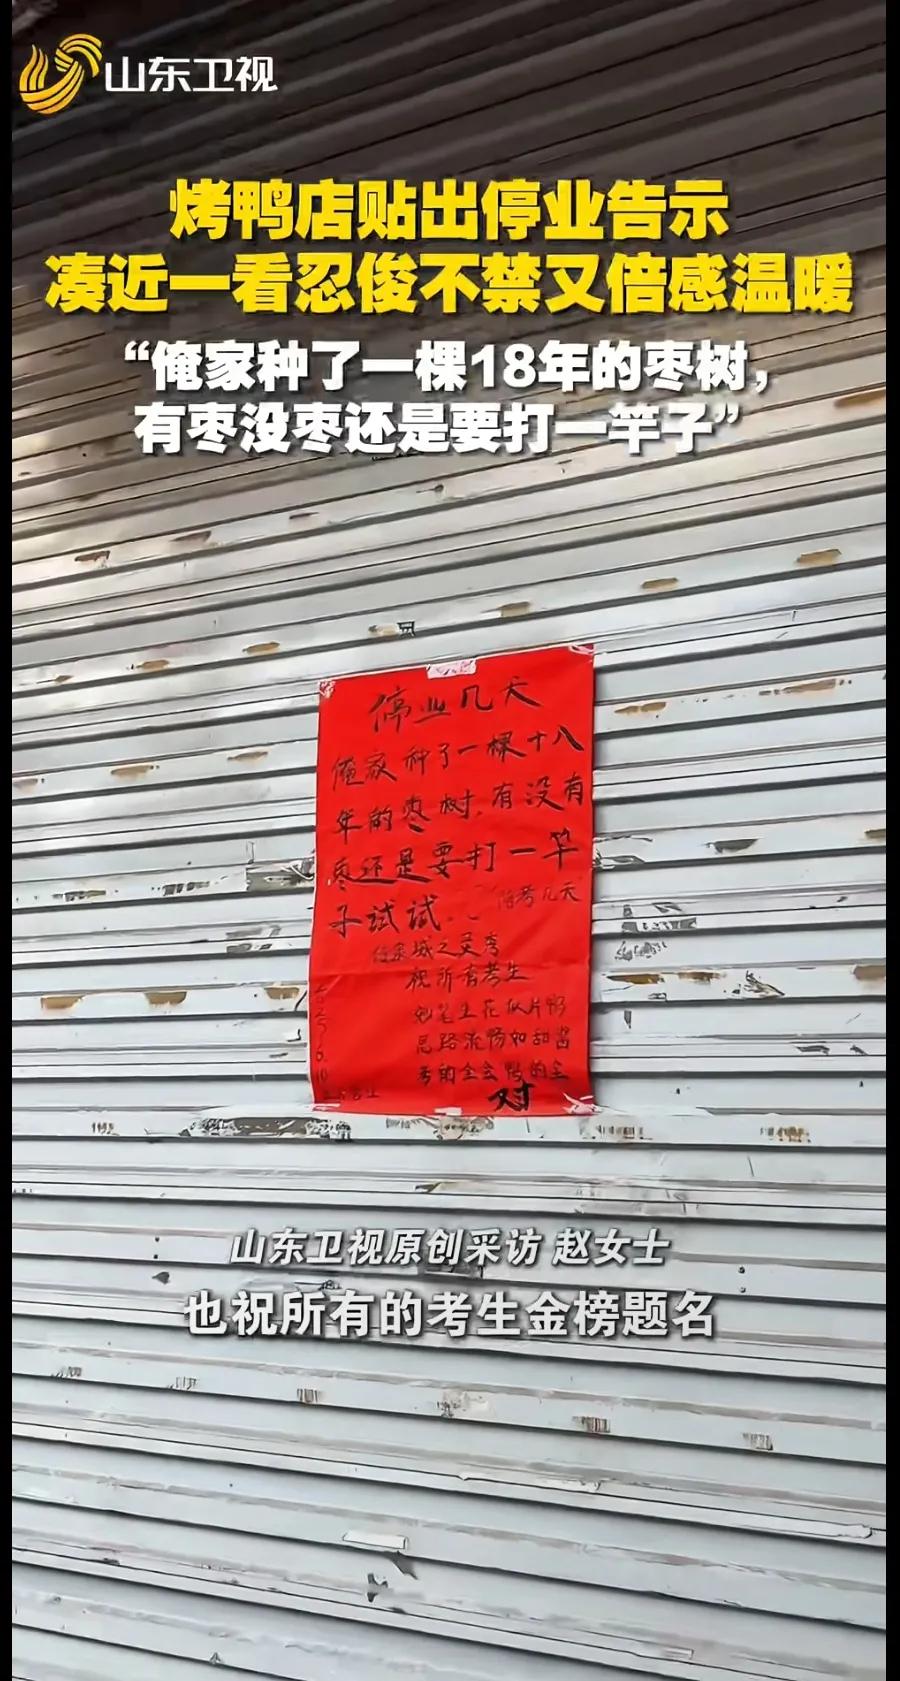 山东卫视
烤鸭店贴出停业告示
凑近一看忍俊不禁又倍感温暖
“俺家种了一棵18年的枣树，
有枣没枣还是要打一竿子”
停业几天
俺家种了一棵十八
年的枣树.有没有
枣还是要打一竿
子试试.
陪考几天
借泉城之灵秀
祝所有考生
妙笔生花似片鸭
思路流畅如甜酱
考的全会 鸭的全
对
山东卫视原创采访 赵女士
也祝所有的考生金榜题名